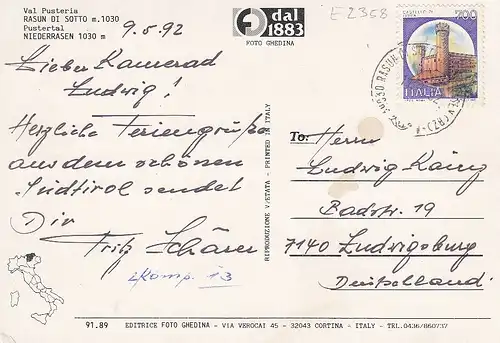 Val Pusteria
RASUN DI SOTTO m.1030
Pustertal
NIEDERRASEN 1030 m
9.5.92
F dal 1883
FOTO GHEDINA
E 2358
700
ITALIA
Lieber Kamerad
Ludwig!
Herzliche Feriengrüße
aus dem schönen
Südtirol sendet
Dir
Fritz Schärer
Komp. 13
RIPRODUZIONE VIETATA - PRINTED IN ITALY
To:
Herrn
Ludwig
Badstr. 19
7140 Ludwigsburg
Deutschland
91.89
EDITRICE FOTO GHEDINA - VIA VEROCAI 45 - 32043 CORTINA - ITALY - TEL.0436/860737